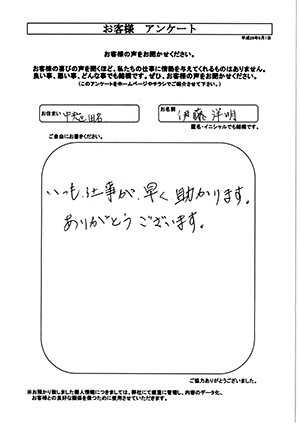 お客様 アンケート
平成29年6月1日
お客様の声をお聞かせください。
お客様の喜びの声を聞くほど、私たちの仕事に情熱を与えてくれるものはありません。
良い事、悪い事、どんな事でも結構です。ぜひ、お客様の声をお聞かせください。
(このアンケートをホームページやチラシでご紹介させて下さい)
お住まい
お名前 伊藤 洋明
匿名・イニシャルでも結構です。
ご自由にお書きください。
いつも、仕事が、早く助かります。
ありがとうございます。
ご協力ありがとうございました。
※お預かり致しました個人情報につきましては、弊社にて厳重に管理し、内容のデータ化、
お客様との良好な関係を築くために使用させていただきます。